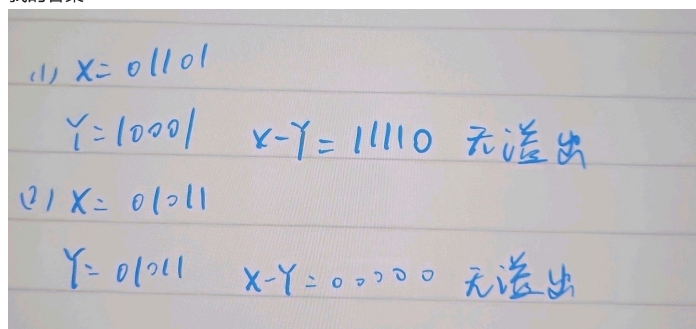 (1) X=01101
Y=10001 X-Y=11110 无溢出
(2) X=01011
Y=01011 X-Y=00000 无溢出